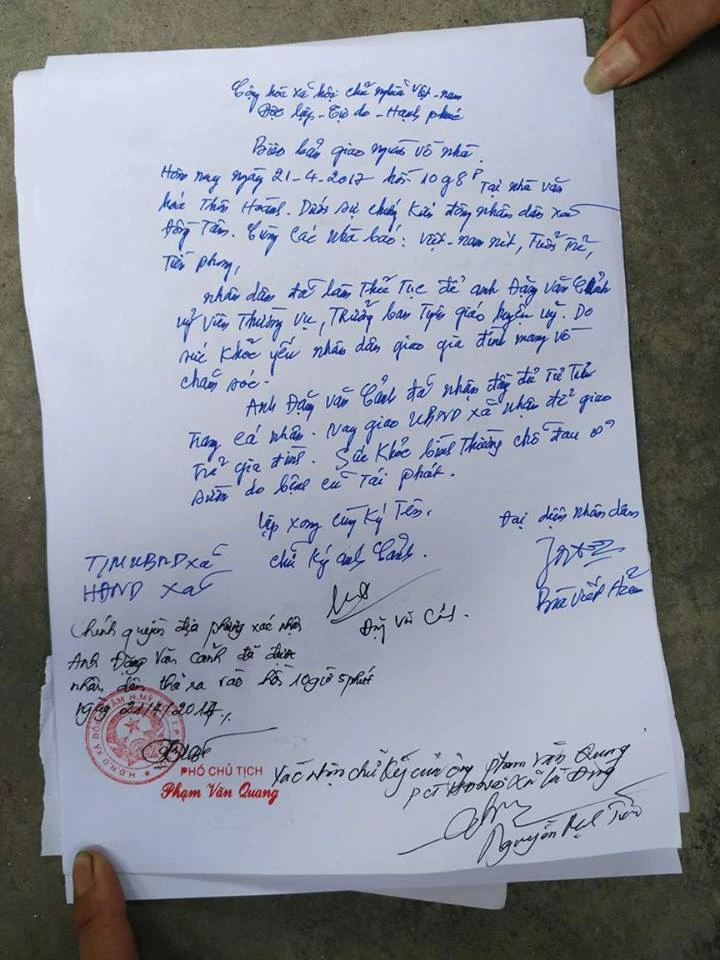 Cộng hòa xã hội chủ nghĩa Việt-nam
Độc lập-Tự do-Hạnh phúc
Biên bản giao người về nhà.
Hôm nay ngày 21-4-2017 hồi 10g8p Tại nhà văn
hóc Thôn Hoành. Dưới sự chứng Kiến đông nhân dân xã
Đồng Tâm. Cùng Các Nhà báo: Việt-nam nét, Tuổi Trẻ,
Tiền phong,
nhân dân đã làm Thủ Tục để anh Đặng văn Cảnh
uỷ viên Thường vụ, Trưởng ban Tuyên giáo huyện uỷ. Do
sức Khỏe yếu nhân dân giao gia đình mang về
chăm sóc.
Anh Đặng văn Cảnh đã nhận đầy đủ Tư
Trang Cá nhân. Nay giao UBND xã nhận để giao
Trả gia đình. Sức Khỏe bình Thường chỗ đau ở
sườn do bệnh cũ Tái phát.
lập xong cùng Ký Tên.
Đại diện nhân dân
TM UBND xã
chữ Ký anh Cảnh.
HĐND xã
Bùi Viết
Đặng Văn Cảnh.
Chính quyền địa phương xác nhận
Anh Đặng Văn Cảnh đã được
nhân dân thả ra vào hồi 10giờ 5phút
ngày 21/4/2017
PHÓ CHỦ TỊCH
Phạm Văn Quang
Xác nhận chữ Ký của ông Phạm Văn Quang
PCT HĐND Xã là đúng
Nguyễn